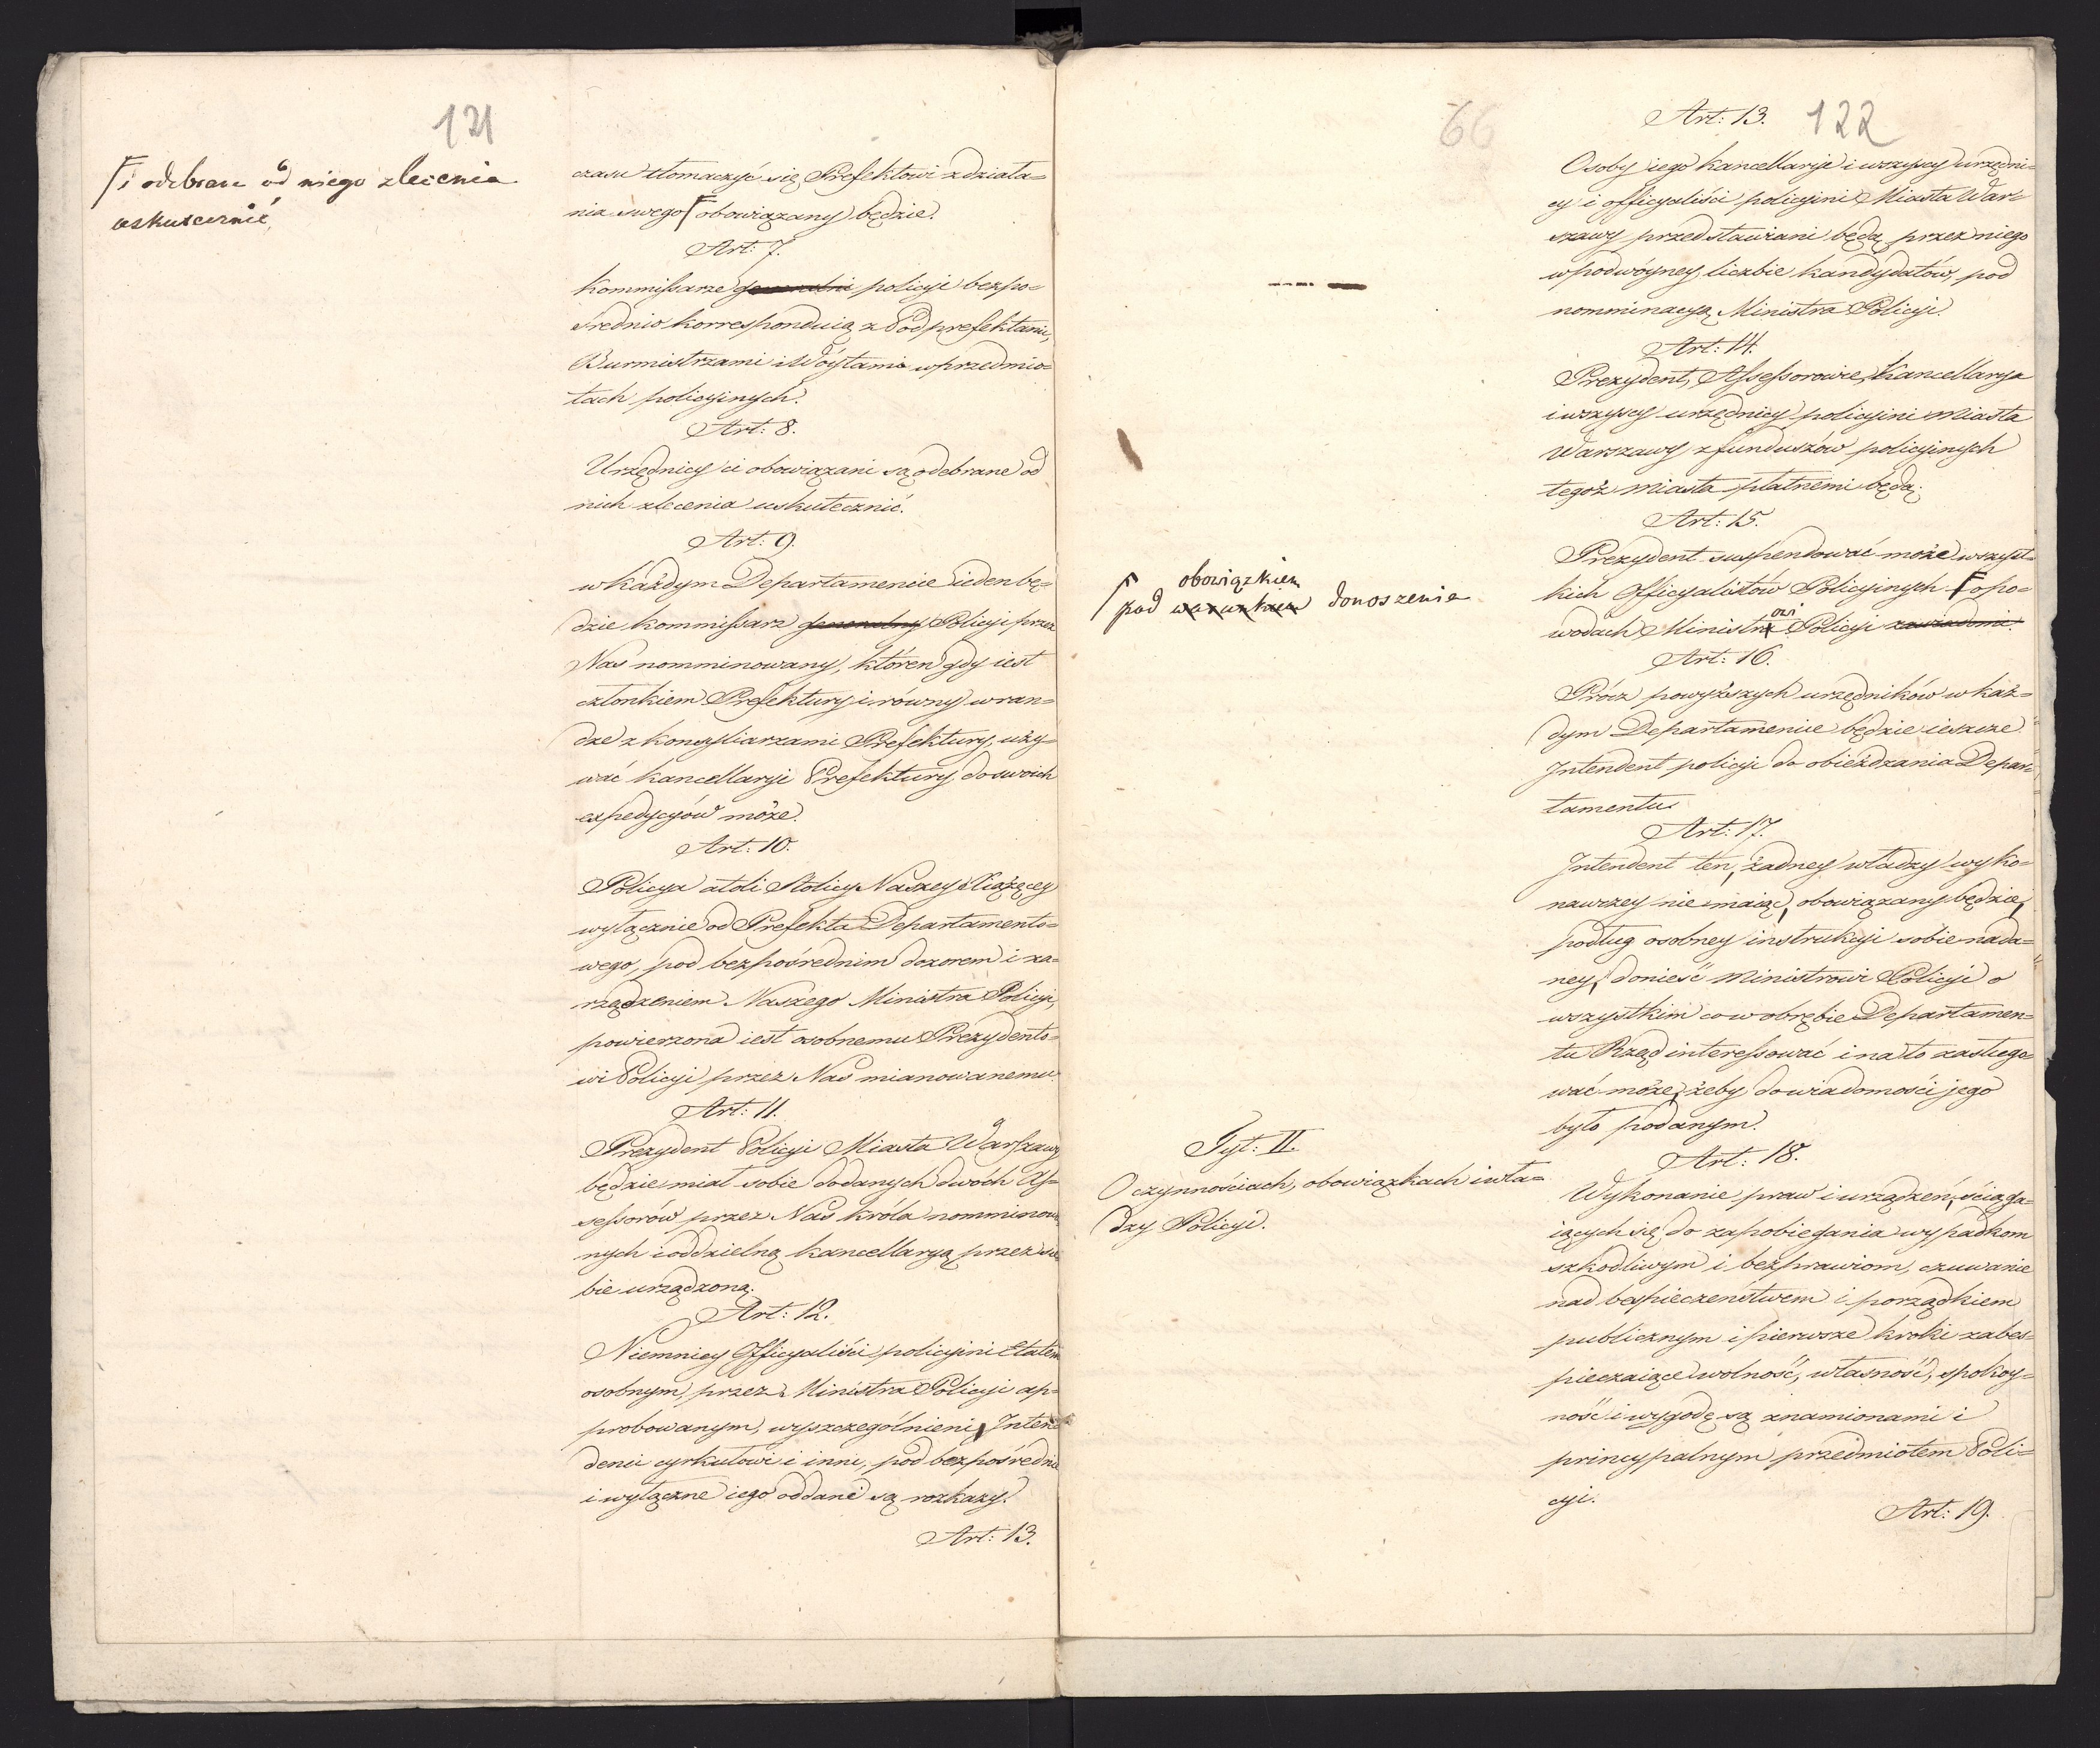 121
Γ i odebrane od niego zlecenia
uskutecznić,
czasu tłomaczyć się Prefektowi z działa=
nia swego Γ obowiązany będzie.
Art: 7.
Kommissarze generalni policyi bezpo=
średnio korrespondują z Podprefektami,
Burmistrzami i Wóytami w przedmio=
tach policyinych.
Art: 8.
Urzędnicy ci obowiązani są odebrane od
nich zlecenia uskutecznić.
Art: 9.
w każdym Departamencie ieden bę=
dzie kommissarz generalny Policyi przez
Nas nomminowany, któren gdy iest
członkiem Prefektury i równy w ran=
dze z konsyliarzami Prefektury, uży=
wać kancellaryi Prefektury do swoich
expedycyów może.
Art: 10.
Policya atoli Stolicy Naszey Xiążęcey
wyłącznie od Prefekta Departamento=
wego, pod bezpośrednim dozorem i za=
rządzeniem Naszego Ministra Policyi,
powierzona iest osobnemu Prezydento=
wi Policyi przez Nas mianowanemu.
Art: 11.
Prezydent Policyi Miasta Warszawy
będzie miał sobie dodanych dwóch As=
sessorów przez Nas króla nomminowa
nych i oddzielną kancellaryą przez sie
bie urządzoną.
Art: 12.
Niemniey Officyaliści policyini Etatem
osobnym, przez Ministra Policyi ap=
probowanym, wyszczególnieni, Inten=
denci cyrkułowi i inni, pod bezpośrednie
i wyłączne iego oddani są rozkazy.
Art: 13.
66
122
Art: 13.
Osoby iego kancellaryi i wszyscy urzędni=
cy i officyaliści policyini Miasta War=
szawy przedstawiani będą przez niego
w podwóyney liczbie kandydatów, pod
nomminacyą Ministra Policyi.
Art: 14.
Prezydent, Assessorowie, Kancellarya
i wszyscy urzędnicy policyini miasta
Warszawy z funduszów policyinych
tegoż miasta płatnemi będą.
Art: 15.
Prezydent suspendować może wszyst=
kich Officyalistów Policyinych Γ o po=
wodach Ministra owi Policyi zawiadomi.
obowiązkiem
Γ pod warunkiem donoszenia
Art: 16.
Prócz powyższych urzędników w każ=
dym Departamencie będzie ieszcze
Intendent policyi do obieżdzania Depar=
tamentu.
Art: 17.
Intendent ten, żadney władzy wyko=
nawczey nie maiąc, obowiązany będzie,
podług osobney instrukcyi sobie nada=
ney, donieść Ministrowi Policyi o
wszystkim co w obrębie Departamen=
tu Rząd interessować i na to zasługi=
wać może, żeby do wiadomości jego
było podanym.
Tyt: II.
O czynnościach, obowiązkach i wła=
dzy Policyi.
Art: 18.
Wykonanie praw i urządzeń, ściąga=
iących się do zapobiegania wypadkom
szkodliwym i bezprawiom, czuwanie
nad bespieczeństwem i porządkiem
publicznym i pierwsze kroki zabes=
pieczaiące wolność, własność, spokoy=
ność i wygodę są znamionami i
pryncypalnym przedmiotem Poli=
cyi.
Art: 19.